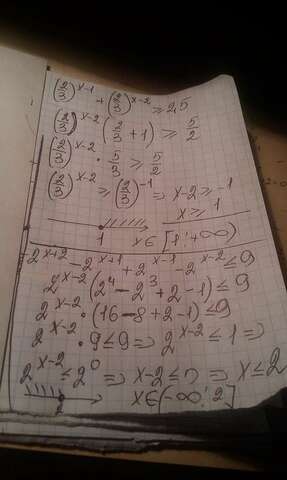 (2/3)^(x-1) + (2/3)^(x-2) ≥ 2,5
(2/3)^(x-2) (2/3 + 1) ≥ 5/2
(2/3)^(x-2) · 5/3 ≥ 5/2
(2/3)^(x-2) ≥ (2/3)^(-1) => x-2 ≥ -1
x ≥ 1
1 x∈[1;+∞)
2^(x+2) - 2^(x+1) + 2^(x-1) - 2^(x-2) ≤ 9
2^(x-2) (2^4 - 2^3 + 2 - 1) ≤ 9
2^(x-2) · (16 - 8 + 2 - 1) ≤ 9
2^(x-2) · 9 ≤ 9 => 2^(x-2) ≤ 1 =>
2^(x-2) ≤ 2^0 => x-2 ≤ 0 => x ≤ 2
2 x∈(-∞;2]